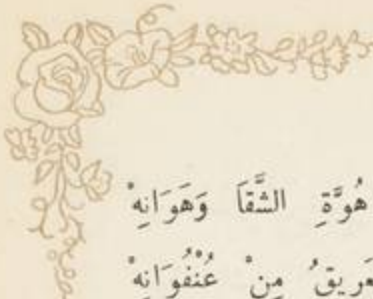 هُوَّةِ الشَّقَا وَهَوَانِهْ
مِنْ عُنْفُوَانِهْ